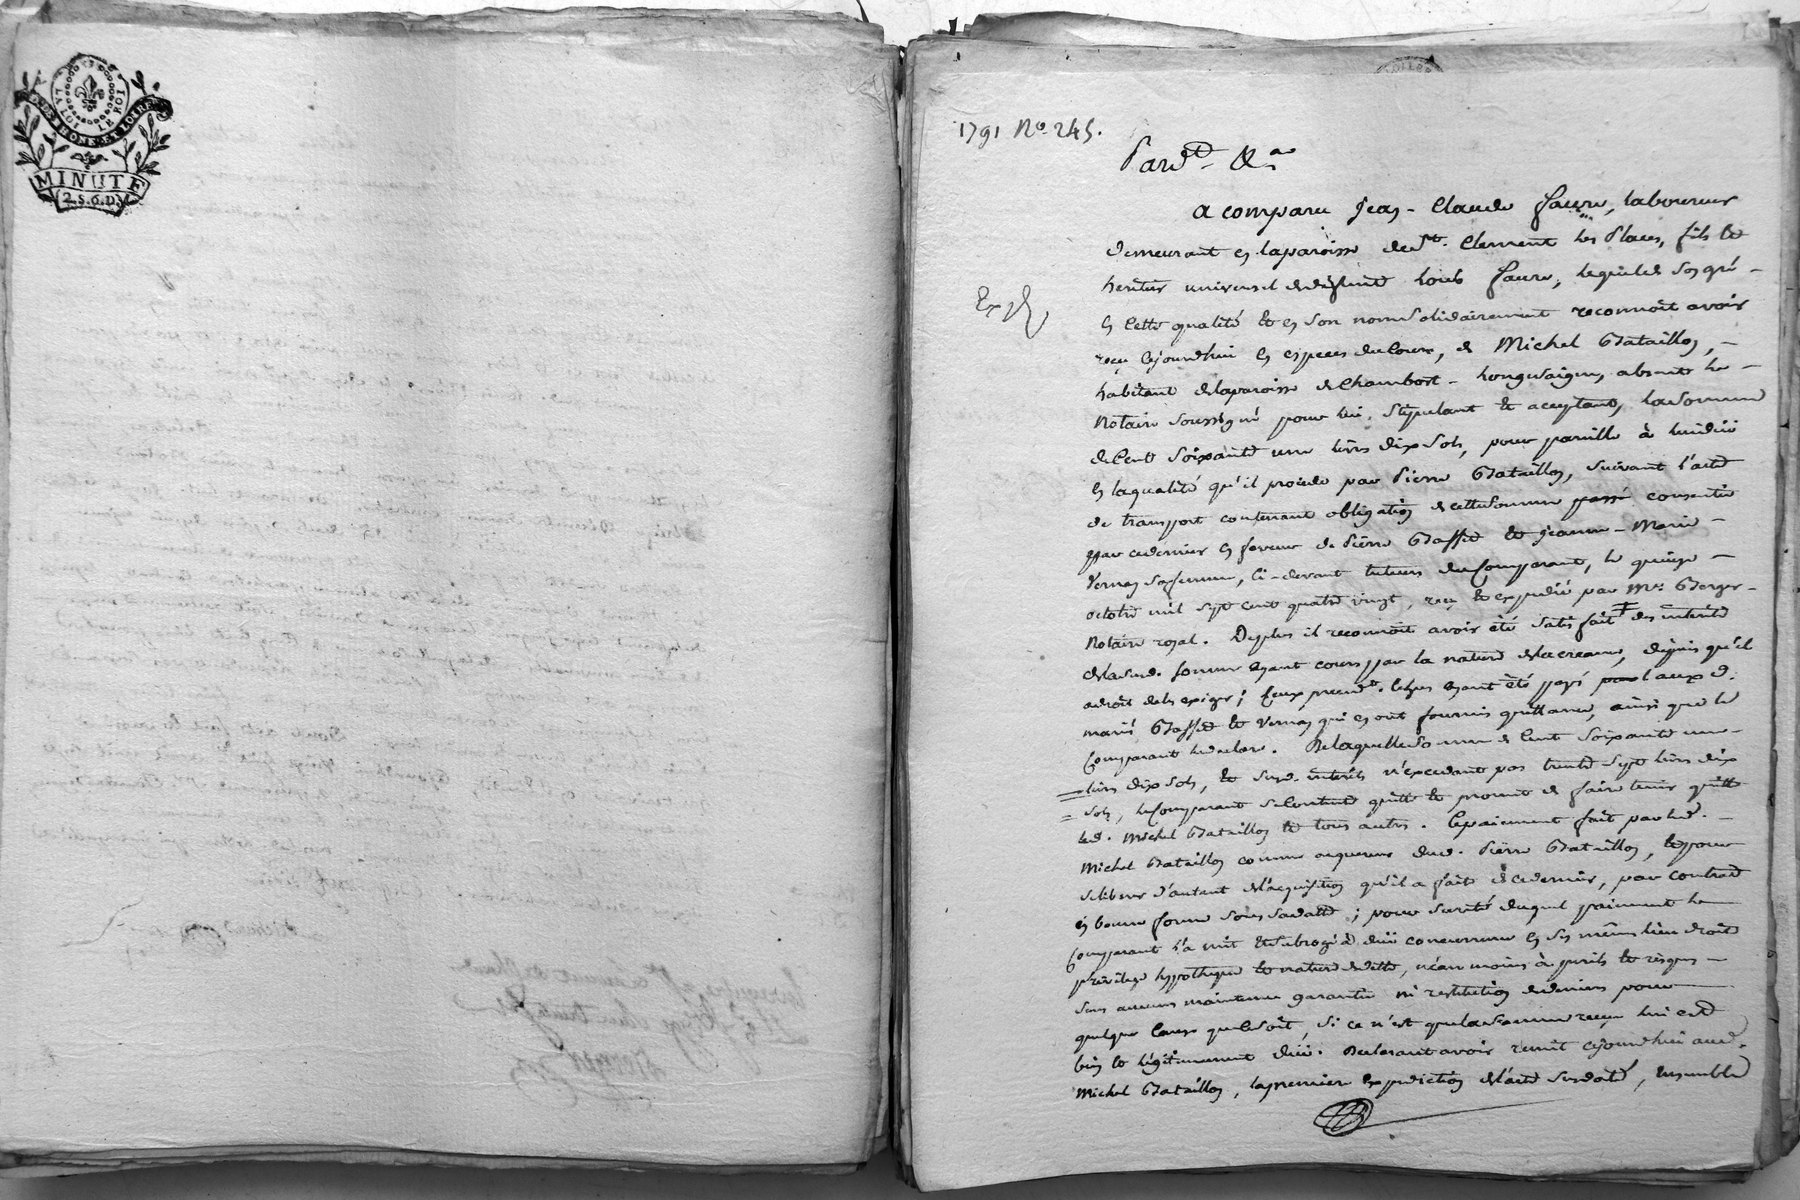 LA LOI LE ROI
DEP. RHONE ET LOIRE
MINUTE
2.S.6.D.
1791 No. 245.
Pard.t &a
Exp.
a comparu Jean-Claude faure, laboureur
demeurant en la paroisse de St. Clement les Places, fils et
heritier universel de deffunt Louis faure, lequel de son gré
en cette qualité et en son nom solidairement reconnoit avoir
reçu cejourd'hui en especes du cours, de Michel Bataillon,
habitant de la paroisse de Chambost-Longessaigne, absent le
Notaire soussigné pour lui stipulant et acceptant, la somme
de Cent soixante une livres dix sols, pour pareille à lui düe
en la qualité qu'il procede par Pierre Bataillon, suivant l'acte
de transport contenant obligation de cette somme passé consentie
par ce dernier en faveur de Pierre Basset et Jeanne-Marie
Vernay sa femme, ci-devant tuteurs du Comparant, le quinze
octobre mil sept cent quatre vingt, reçu et expedié par Me. Berger
Notaire royal. De plus il reconnoit avoir été satisfait des interets
de lad. somme ayant cours par la nature de la creance, depuis qu'il
a droit de les exiger; ceux préced. échus ayant été payé auxd.
mariés Basset et Vernay qui en ont fournis quittance, ainsi que le
Comparant le declare. De laquelle somme de Cent soixante une
livres dix sols, et susd. interêts n'excedant pas trente sept livres dix
sols, le Comparant se contente quitte et promet de faire tenir quitte
led. Michel Bataillon et tous autres. Ce paiement fait par led.
Michel Bataillon comme acquereur dud. Pierre Bataillon, et pour
se liberer d'autant de l'acquisition qu'il a fait de ce dernier, par contrat
en bonne forme sous sa datte; pour sureté duquel paiement le
Comparant l'a mit et subrogé à düe concurrence en ses mêmes lieu droit
privilege hypotheque et nature de dette, néanmoins à perils et risques
sans aucune maintenue garantie ni restitution de deniers pour
quelque cause que ce soit, si ce n'est que la somme reçue lui est
bien et légitimement düe. Declarant avoir remit cejourd'hui aud.
Michel Bataillon, la premiere expedition de l'acte susdaté, ensemble